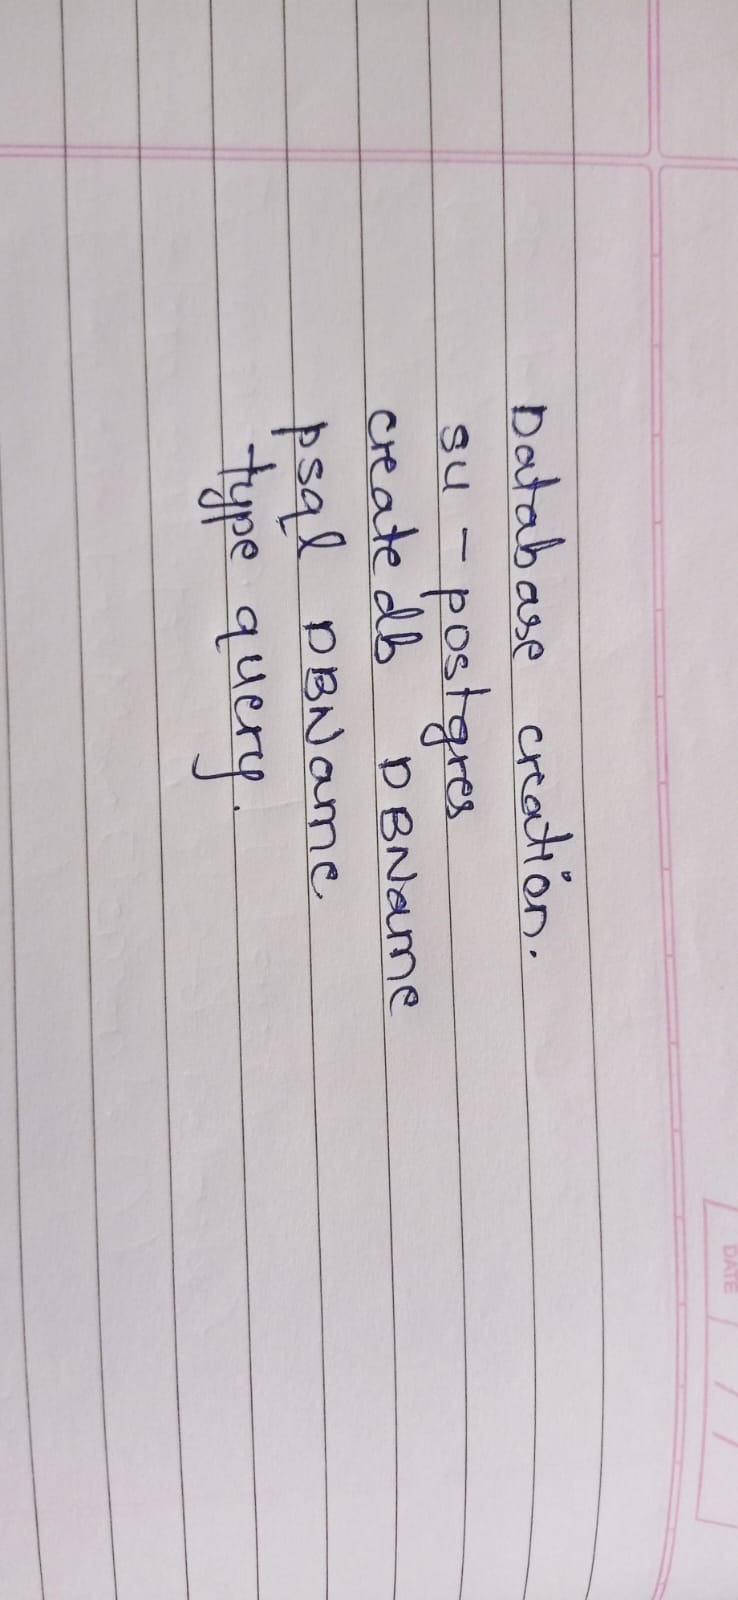 Database creation.
su - postgres
createdb DBName
psql DBName
type query.
DATE